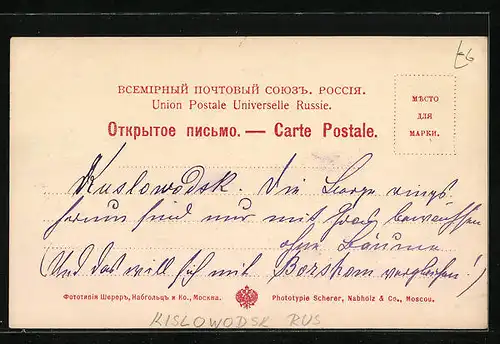 26
ВСЕМІРНЫЙ ПОЧТОВЫЙ СОЮЗЪ. РОССІЯ.
Union Postale Universelle Russie.
Открытое письмо. — Carte Postale.
МѢСТО
ДЛЯ
МАРКИ.
Kuslowodsk. Die Berge rings-
herum sind nur mit Gras bewachsen
ohne Bäume
(Und das will sich mit Borshom vergleichen!)
Фототипія Шереръ, Набгольцъ и Ко., Москва.
Phototypie Scherer, Nabholz & Co., Moscou.
KISLOWODSK RUS